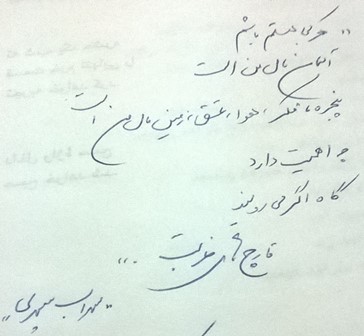 " هر کجا هستم باشم
آسمان مال من است
پنجره، فکر، هوا، عشق، زمین مال من است
چه اهمیت دارد
گاه اگر می رویند
قارچ های غربت ...
"سهراب سپهری"